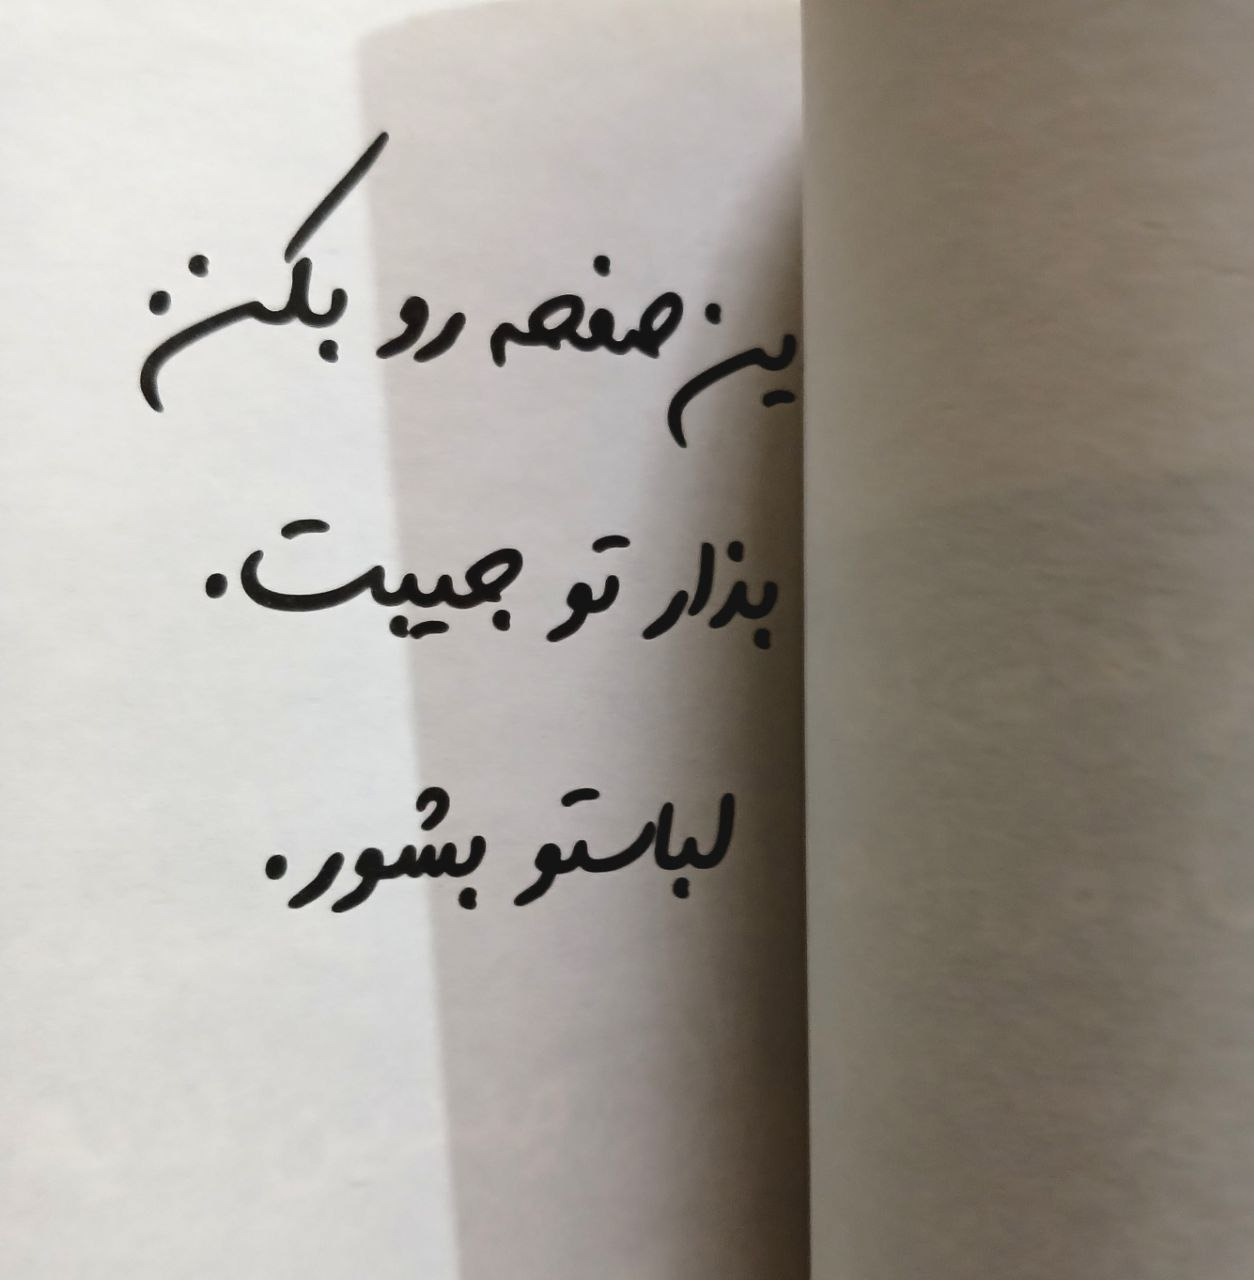 ین صفحه رو بکن
بذار تو جیبت.
لباستو بشور.